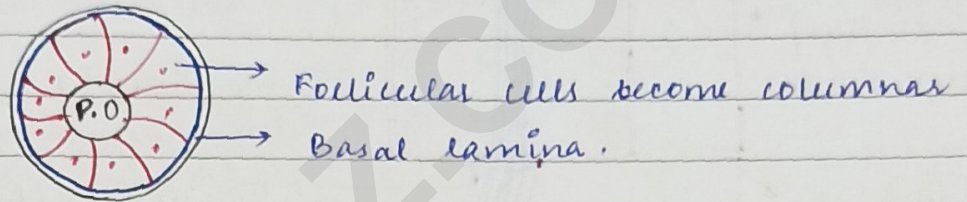 P.O
Follicular cells become columnar
Basal lamina.
Z.CO